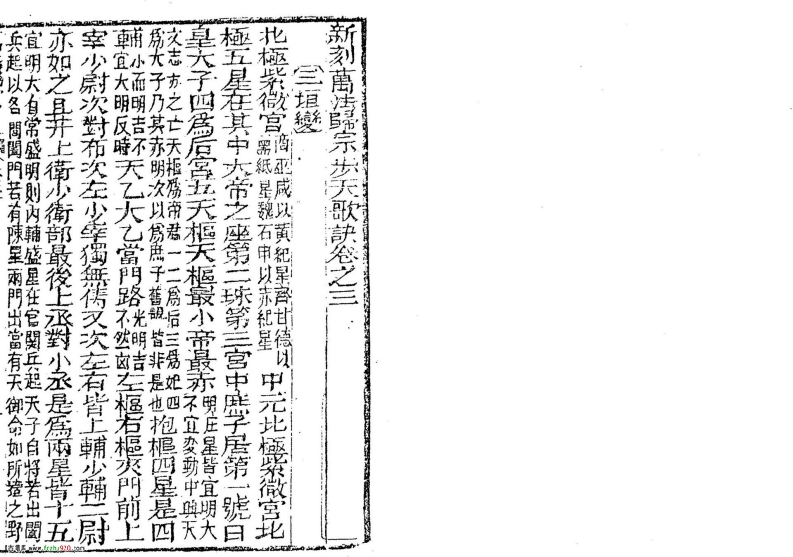 新刻萬法歸宗步天歌訣卷之三
三垣變
北極紫微宮商巫咸以黃紀星齊甘德以黑紙星魏石申以赤紀星中元北極紫微宮北
極五星在其中大帝之座第二珠第三宮中庶子居第一號曰
皇太子四爲后宮五天樞天樞最小帝最赤明庄星皆宜明大不宜変動中與天
文志亦之亡天樞爲帝君一二爲后三爲妃四爲大子乃其赤明次以爲庶子舊說皆非是也抱樞四星是四
輔小而明吉不宜大明反時天乙太乙當門路光明吉不然凶左樞右樞夾門前上
宰少尉次對布次左少宰獨無儔又次左右皆上輔少輔二尉
亦如之且井上衛少衛部最後上丞對小丞是爲兩星皆十五
宜明大自常盛明則內輔盛星在官闕兵起天子自將若出闔
兵起以各閶闔門若有陳星兩門出當有天御命如所猹之野